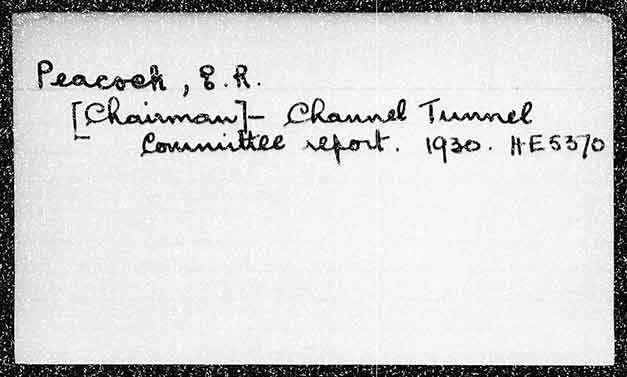 Peacock, E.R.
[Chairman] - Channel Tunnel
Committee report. 1930. HE5370